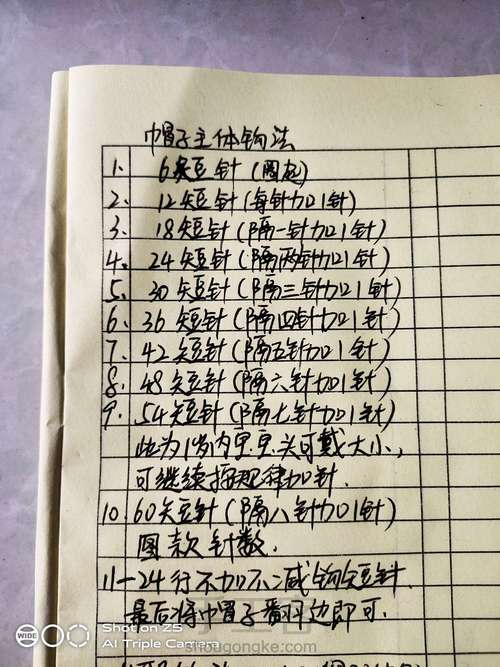 帽子主体钩法
1. 6短针(圈起)
2. 12短针(每针加1针)
3. 18短针(隔一针加1针)
4. 24短针(隔两针加1针)
5. 30短针(隔三针加1针)
6. 36短针(隔四针加1针)
7. 42短针(隔五针加1针)
8. 48短针(隔六针加1针)
9. 54短针(隔七针加1针)
此为1岁内宝宝头可戴大小,
可继续按规律加针.
10. 60短针(隔八针加1针)
图款针数.
11-24行不加不减钩短针
最后将帽子翻边即可.
WIDE
Shot on Z5
AI Triple Camera
shougongke.com